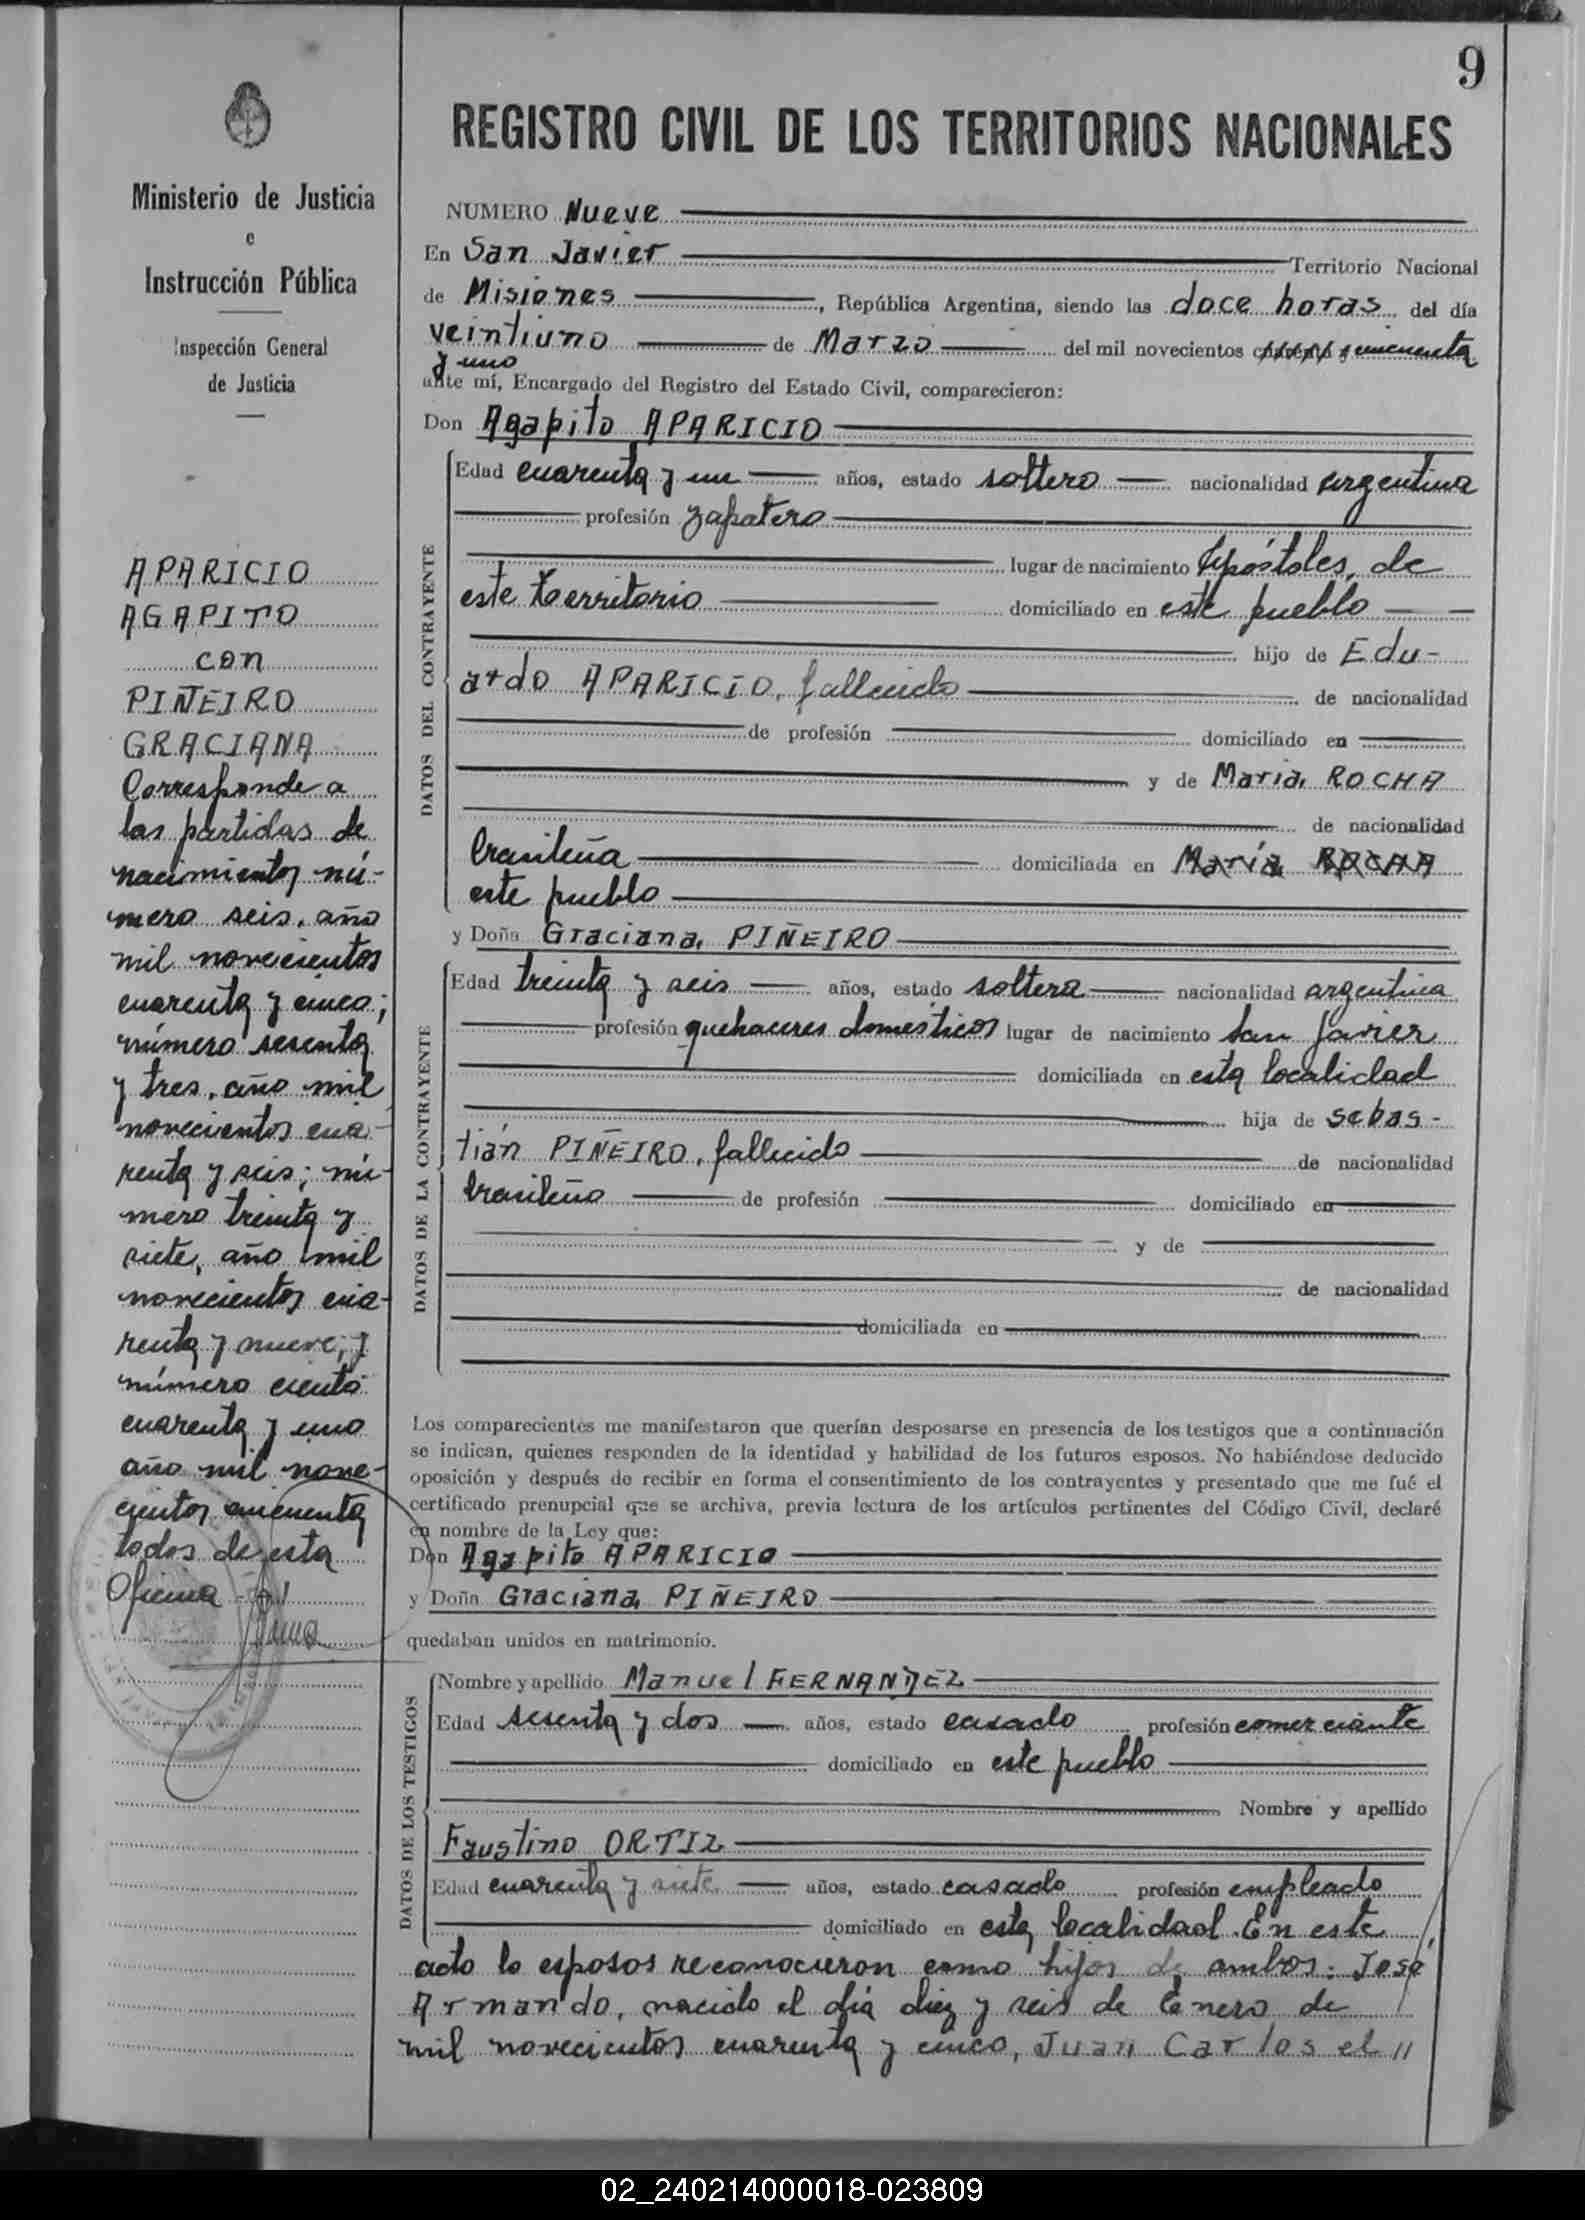 9
Ministerio de Justicia
e
Instrucción Pública
Inspección General
de Justicia
APARICIO
AGAPITO
con
PIÑEIRO
GRACIANA
Corresponde a
las partidas de
nacimientos nú-
mero seis, año
mil novecientos
cuarenta y cinco;
número sesenta
y tres, año mil
novecientos cua-
renta y seis; nú-
mero treinta y
siete, año mil
novecientos cua-
renta y nueve; y
número ciento
cuarenta y uno
año mil nove-
cientos cincuenta
todos de esta
Oficina
REGISTRO CIVIL DE LOS TERRITORIOS NACIONALES
NUMERO Nueve
En San Javier Territorio Nacional
de Misiones, República Argentina, siendo las doce horas del día
veintiuno de Marzo del mil novecientos cuarenta y cincuenta
y uno
ante mí, Encargado del Registro del Estado Civil, comparecieron:
Don Agapito APARICIO
DATOS DEL CONTRAYENTE
Edad cuarenta y un años, estado soltero nacionalidad argentina
profesión zapatero
lugar de nacimiento Apóstoles, de
este territorio domiciliado en este pueblo
hijo de Edu-
ardo APARICIO, fallecido de nacionalidad
de profesión domiciliado en
y de María ROCHA
de nacionalidad
brasileña domiciliada en María ROCHA
este pueblo
y Doña Graciana PIÑEIRO
DATOS DE LA CONTRAYENTE
Edad treinta y seis años, estado soltera nacionalidad argentina
profesión quehaceres domésticos lugar de nacimiento San Javier
domiciliada en esta localidad
hija de Sebas-
tián PIÑEIRO, fallecido de nacionalidad
brasileño de profesión domiciliado en
y de
de nacionalidad
domiciliada en
Los comparecientes me manifestaron que querían desposarse en presencia de los testigos que a continuación
se indican, quienes responden de la identidad y habilidad de los futuros esposos. No habiéndose deducido
oposición y después de recibir en forma el consentimiento de los contrayentes y presentado que me fué el
certificado prenupcial que se archiva, previa lectura de los artículos pertinentes del Código Civil, declaré
en nombre de la Ley que:
Don Agapito APARICIO
y Doña Graciana PIÑEIRO
quedaban unidos en matrimonio.
DATOS DE LOS TESTIGOS
Nombre y apellido Manuel FERNANDEZ
Edad sesenta y dos años, estado casado profesión comerciante
domiciliado en este pueblo
Nombre y apellido
Faustino ORTIZ
Edad cuarenta y siete años, estado casado profesión empleado
domiciliado en esta localidad. En este
acto lo esposos reconocieron como hijos de ambos: José
Armando, nacido el día diez y seis de Enero de
mil novecientos cuarenta y cinco, Juan Carlos el
02_240214000018-023809